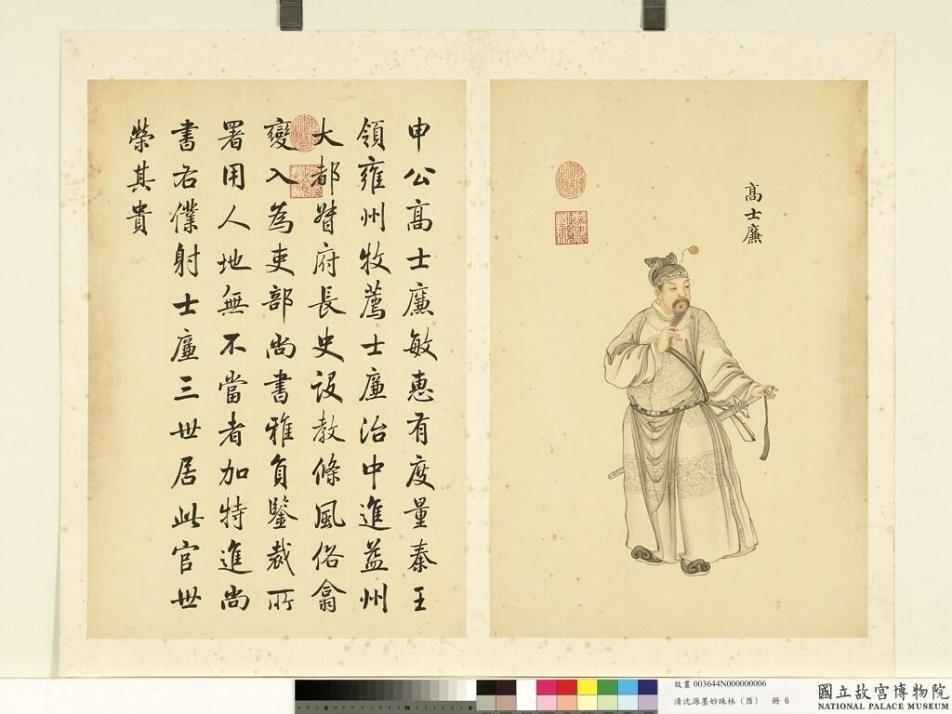 髙士廉
申公髙士廉敏惠有度量秦王
領雍州牧薦士廉治中進益州
大都督府長史設教條風俗翕
變入為吏部尚書雅負鑒裁所
署用人地無不當者加特進尚
書右僕射士廉三世居此官世
榮其貴
故畫 003644N00000006
清沈源墨妙珠林（酉） 冊 6
國立故宮博物院
NATIONAL PALACE MUSEUM